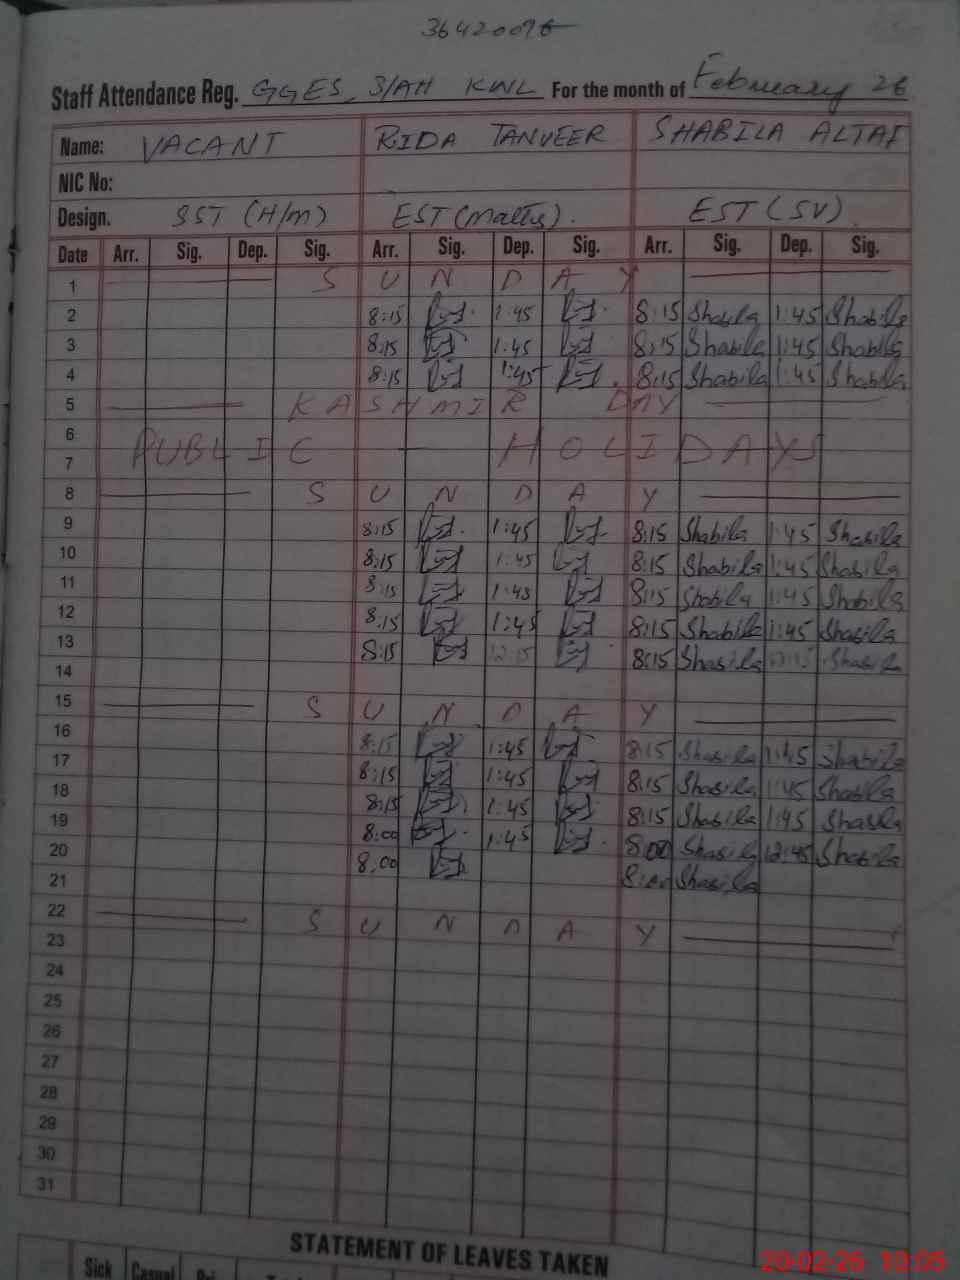 36420096
Staff Attendance Reg. GGES, 3/AH KWL For the month of February 26
Name: VACANT RIDA TANVEER SHABILA ALTAF
NIC No:
Design. SST (H/M) EST (Maths). EST (SV)
Date Arr. Sig. Dep. Sig. Arr. Sig. Dep. Sig. Arr. Sig. Dep. Sig.
1 S U N D A Y
2 8:15 1:45 8:15 Shabila 1:45 Shabila
3 8:15 1:45 8:15 Shabila 1:45 Shabila
4 8:15 1:45 8:15 Shabila 1:45 Shabila
5 KASHMIR DAY
6 PUBLIC HOLIDAYS
7
8 S U N D A Y
9 8:15 1:45 8:15 Shabila 1:45 Shabila
10 8:15 1:45 8:15 Shabila 1:45 Shabila
11 8:15 1:45 8:15 Shabila 1:45 Shabila
12 8:15 1:45 8:15 Shabila 1:45 Shabila
13 8:15 12:15 8:15 Shabila Shabila
14
15 S U N D A Y
16 8:15 1:45 8:15 Shabila 1:45 Shabila
17 8:15 1:45 8:15 Shabila 1:45 Shabila
18 8:15 1:45 8:15 Shabila 1:45 Shabila
19 8:00 1:45 8:00 Shabila Shabila
20 8:00 8:00 Shabila
21
22 S U N D A Y
23
24
25
26
27
28
29
30
31
STATEMENT OF LEAVES TAKEN
Sick Casual
20-02-26 10:05